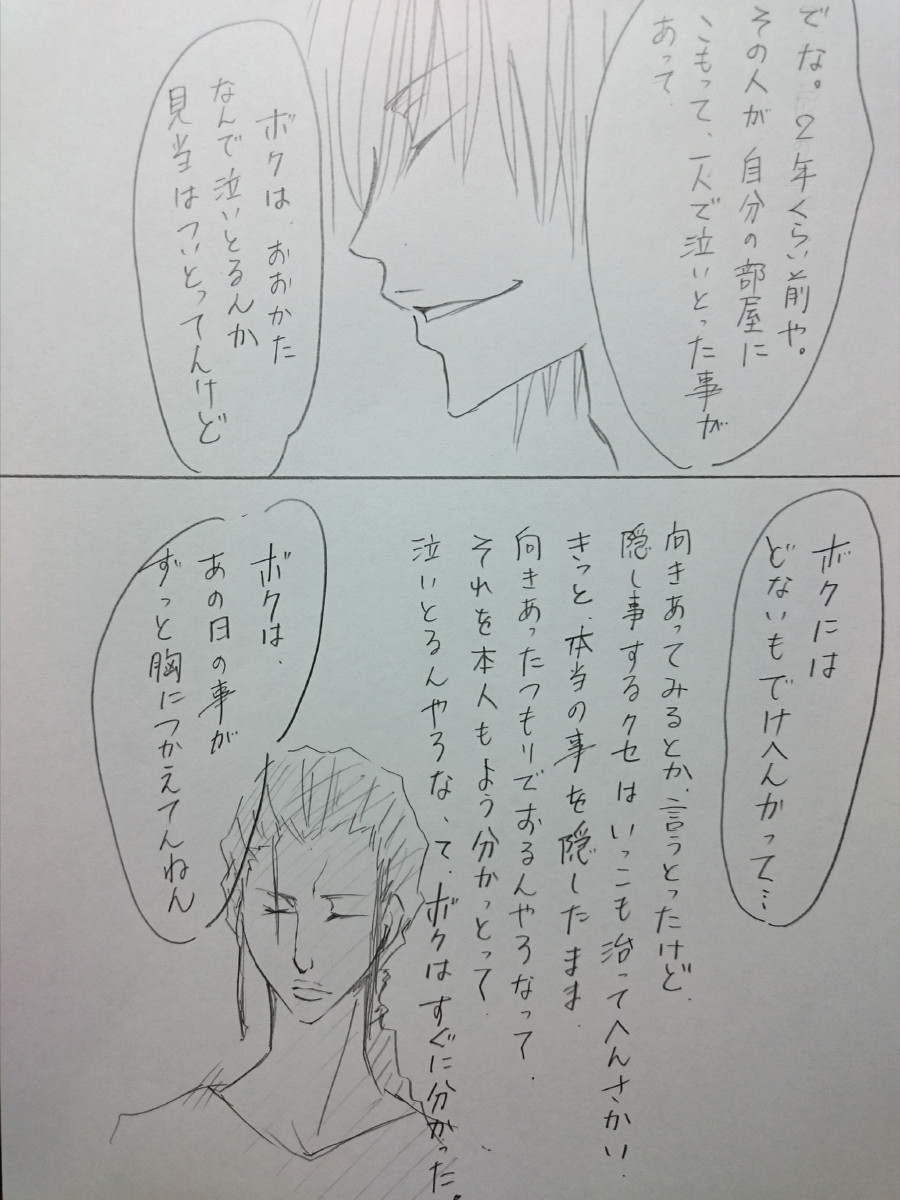 でな。2年くらい前や。
その人が自分の部屋に
こもって、一人で泣いとった事が
あって
ボクは、おおかた
なんで泣いとるんか
見当はついとってんけど
ボクには
どないもでけへんかって…
向きあってみるとか、言うとったけど、
隠し事するクセはいっこも治ってへんさかい、
きっと、本当の事を隠したまま、
向きあったつもりでおるんやろなって、
それを本人もよう分かっとって、
泣いとるんやろな、て、ボクはすぐに分かった。
ボクは、
あの日の事が
ずっと胸につかえてんねん